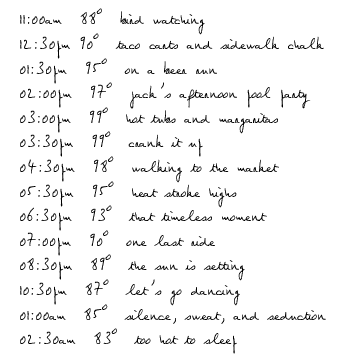 11:00am 88° bird watching
12:30pm 90° taco carts and sidewalk chalk
01:30pm 95° on a beer run
02:00pm 97° jack's afternoon pool party
03:00pm 99° hot tubs and margaritas
03:30pm 99° crank it up
04:30pm 98° walking to the market
05:30pm 95° heat stroke highs
06:30pm 93° that timeless moment
07:00pm 90° one last ride
08:30pm 89° the sun is setting
10:30pm 87° let's go dancing
01:00am 85° silence, sweat, and seduction
02:30am 83° too hot to sleep